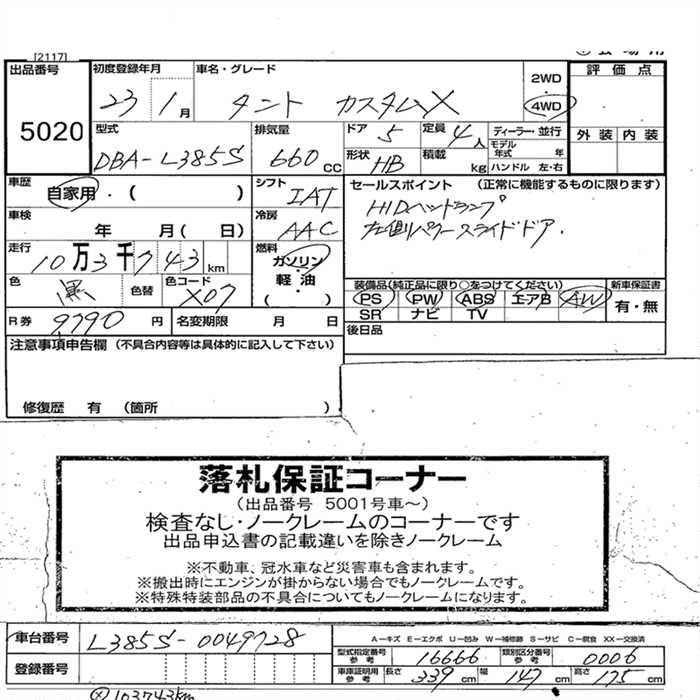 [2117]
出品番号 5020
初度登録年月 23 1月
車名・グレード タント カスタムX
2WD
4WD
評価点
外装 内装
型式 DBA-L385S
排気量 660 cc
ドア 5
形状 HB
定員 4人
積載 kg
ディーラー・並行
モデル年式 年
ハンドル 左・右
車歴 自家用・( )
シフト IAT
セールスポイント (正常に機能するものに限ります)
HIDヘッドランプ
左側パワースライドドア.
車検 年 月( 日)
冷房 AAC
走行 10万3千743km
燃料 ガソリン・軽油・( )
色 黒 色替 色コード X07
装備品(純正品に限り○をつけてください)
PS PW ABS エアB AW
SR ナビ TV
新車保証書
有・無
R券 9790円
名変期限 月 日
後日品
注意事項申告欄 (不具合内容等は具体的に記入して下さい)
修復歴 有 (箇所 ).
落札保証コーナー
(出品番号 5001号車~)
検査なし・ノークレームのコーナーです
出品申込書の記載違いを除きノークレーム
※不動車、冠水車など災害車も含まれます。
※搬出時にエンジンが掛からない場合でもノークレームです。
※特殊特装部品の不具合についてもノークレームになります。
車台番号 L385S-0049728
A-キズ E-エクボ U-凹み W-補修跡 S-サビ C-腐食 XX-交換済
型式指定番号 参考 16666
類別区分番号 参考 0006
登録番号
車庫証明用 参考 長さ 339cm 幅 147cm 高さ 175cm
103743km